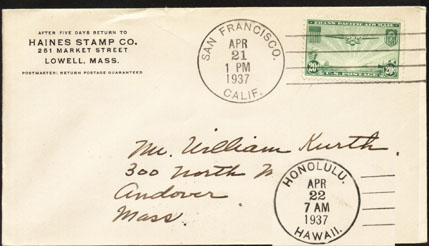 AFTER FIVE DAYS RETURN TO
HAINES STAMP CO.
251 MARKET STREET
LOWELL, MASS.
POSTMASTER: RETURN POSTAGE GUARANTEED
SAN FRANCISCO.
APR
21
1 PM
1937
CALIF.
TRANS-PACIFIC AIR MAIL
20¢ 20¢
U.S. POSTAGE
Mr. William Kurth
300 North
Andover
Mass.
HONOLULU.
APR
22
7 AM
1937
HAWAII.